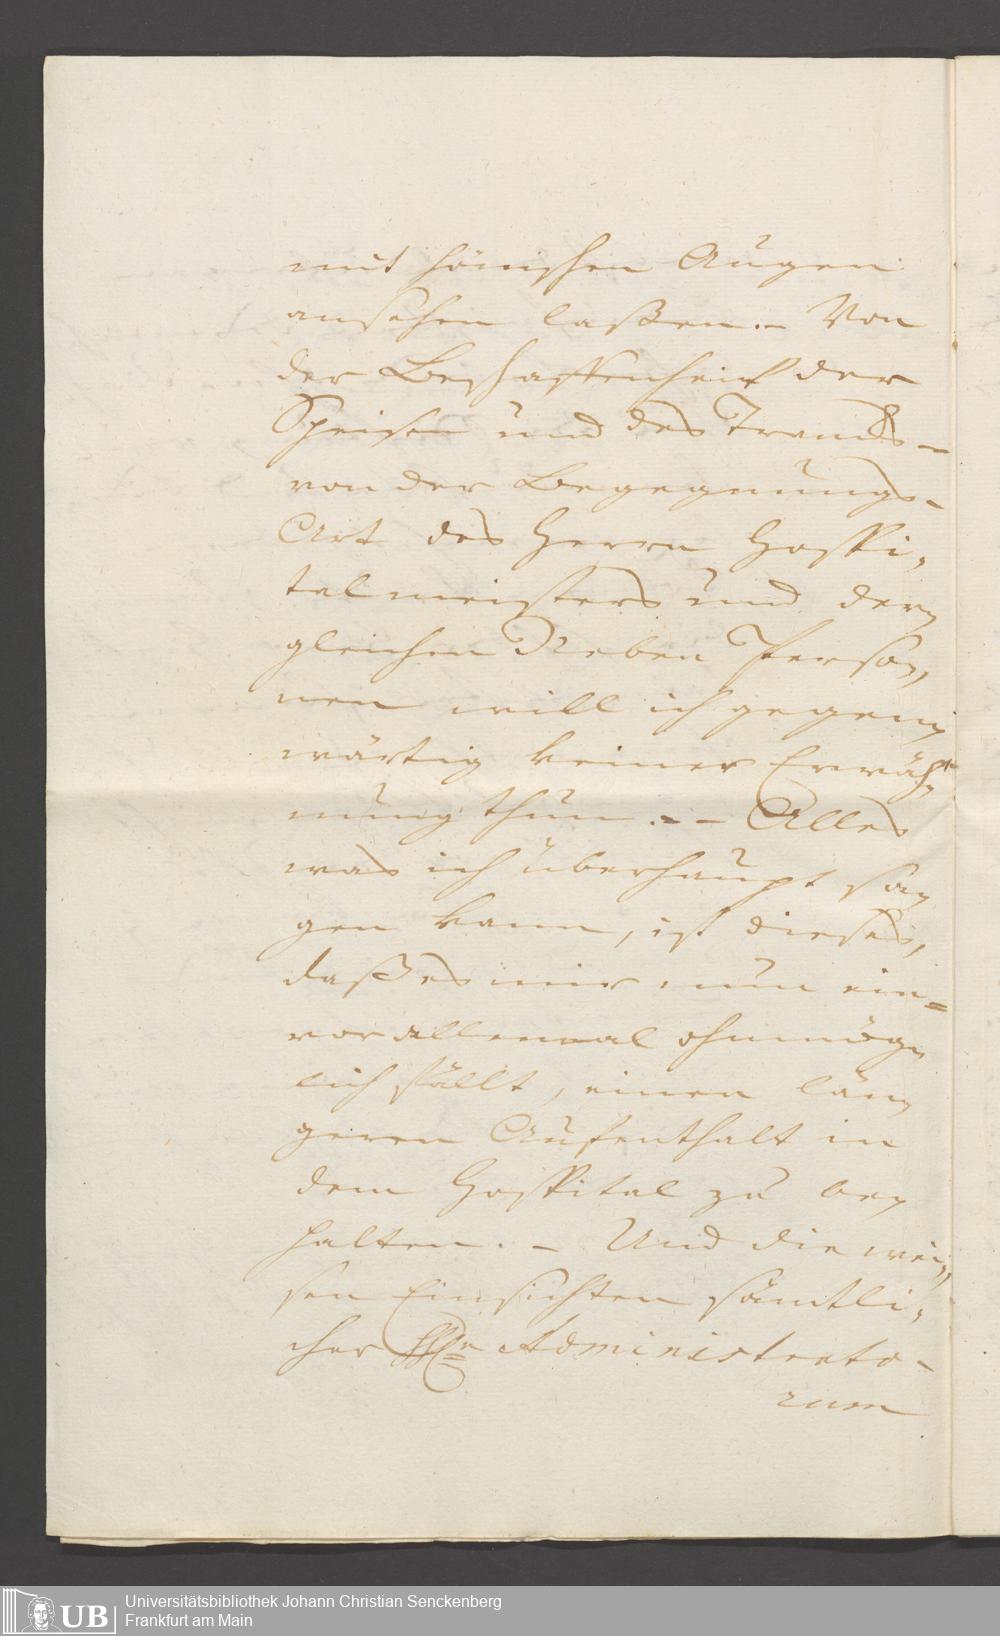 mit hönischen Augen
ansehen laßen. – Von
der Beschaffenheit der
Speisen und des Trancks –
von der Begegnungs-
Art des Herrn Hospi-
talmeisters und der-
gleichen Neben Perso-
nen will ich gegen-
wärtig keiner Erwäh-
nung thun. – – Alles
was ich überhaupt sa-
gen kann, ist dieses,
daß es mir nun ein=
vor allemal ohnmög-
lich fällt, einen län-
geren Aufenthalt in
dem Hospital zu bey
halten. – Und die wei-
sen Einsichten sämtli-
cher HHn Administrato-
rum
UB
Universitätsbibliothek Johann Christian Senckenberg
Frankfurt am Main